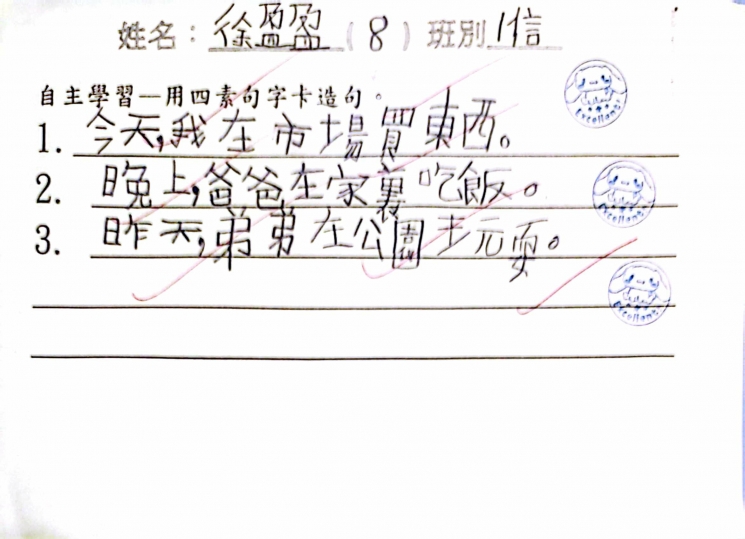 姓名：徐盈盈（8）班別1信
自主學習—用四素句字卡造句。
1. 今天,我在市場買東西。
2. 晚上,爸爸在家裏吃飯。
3. 昨天,弟弟在公園玩耍。
Excellent!
Excellent!
Excellent!